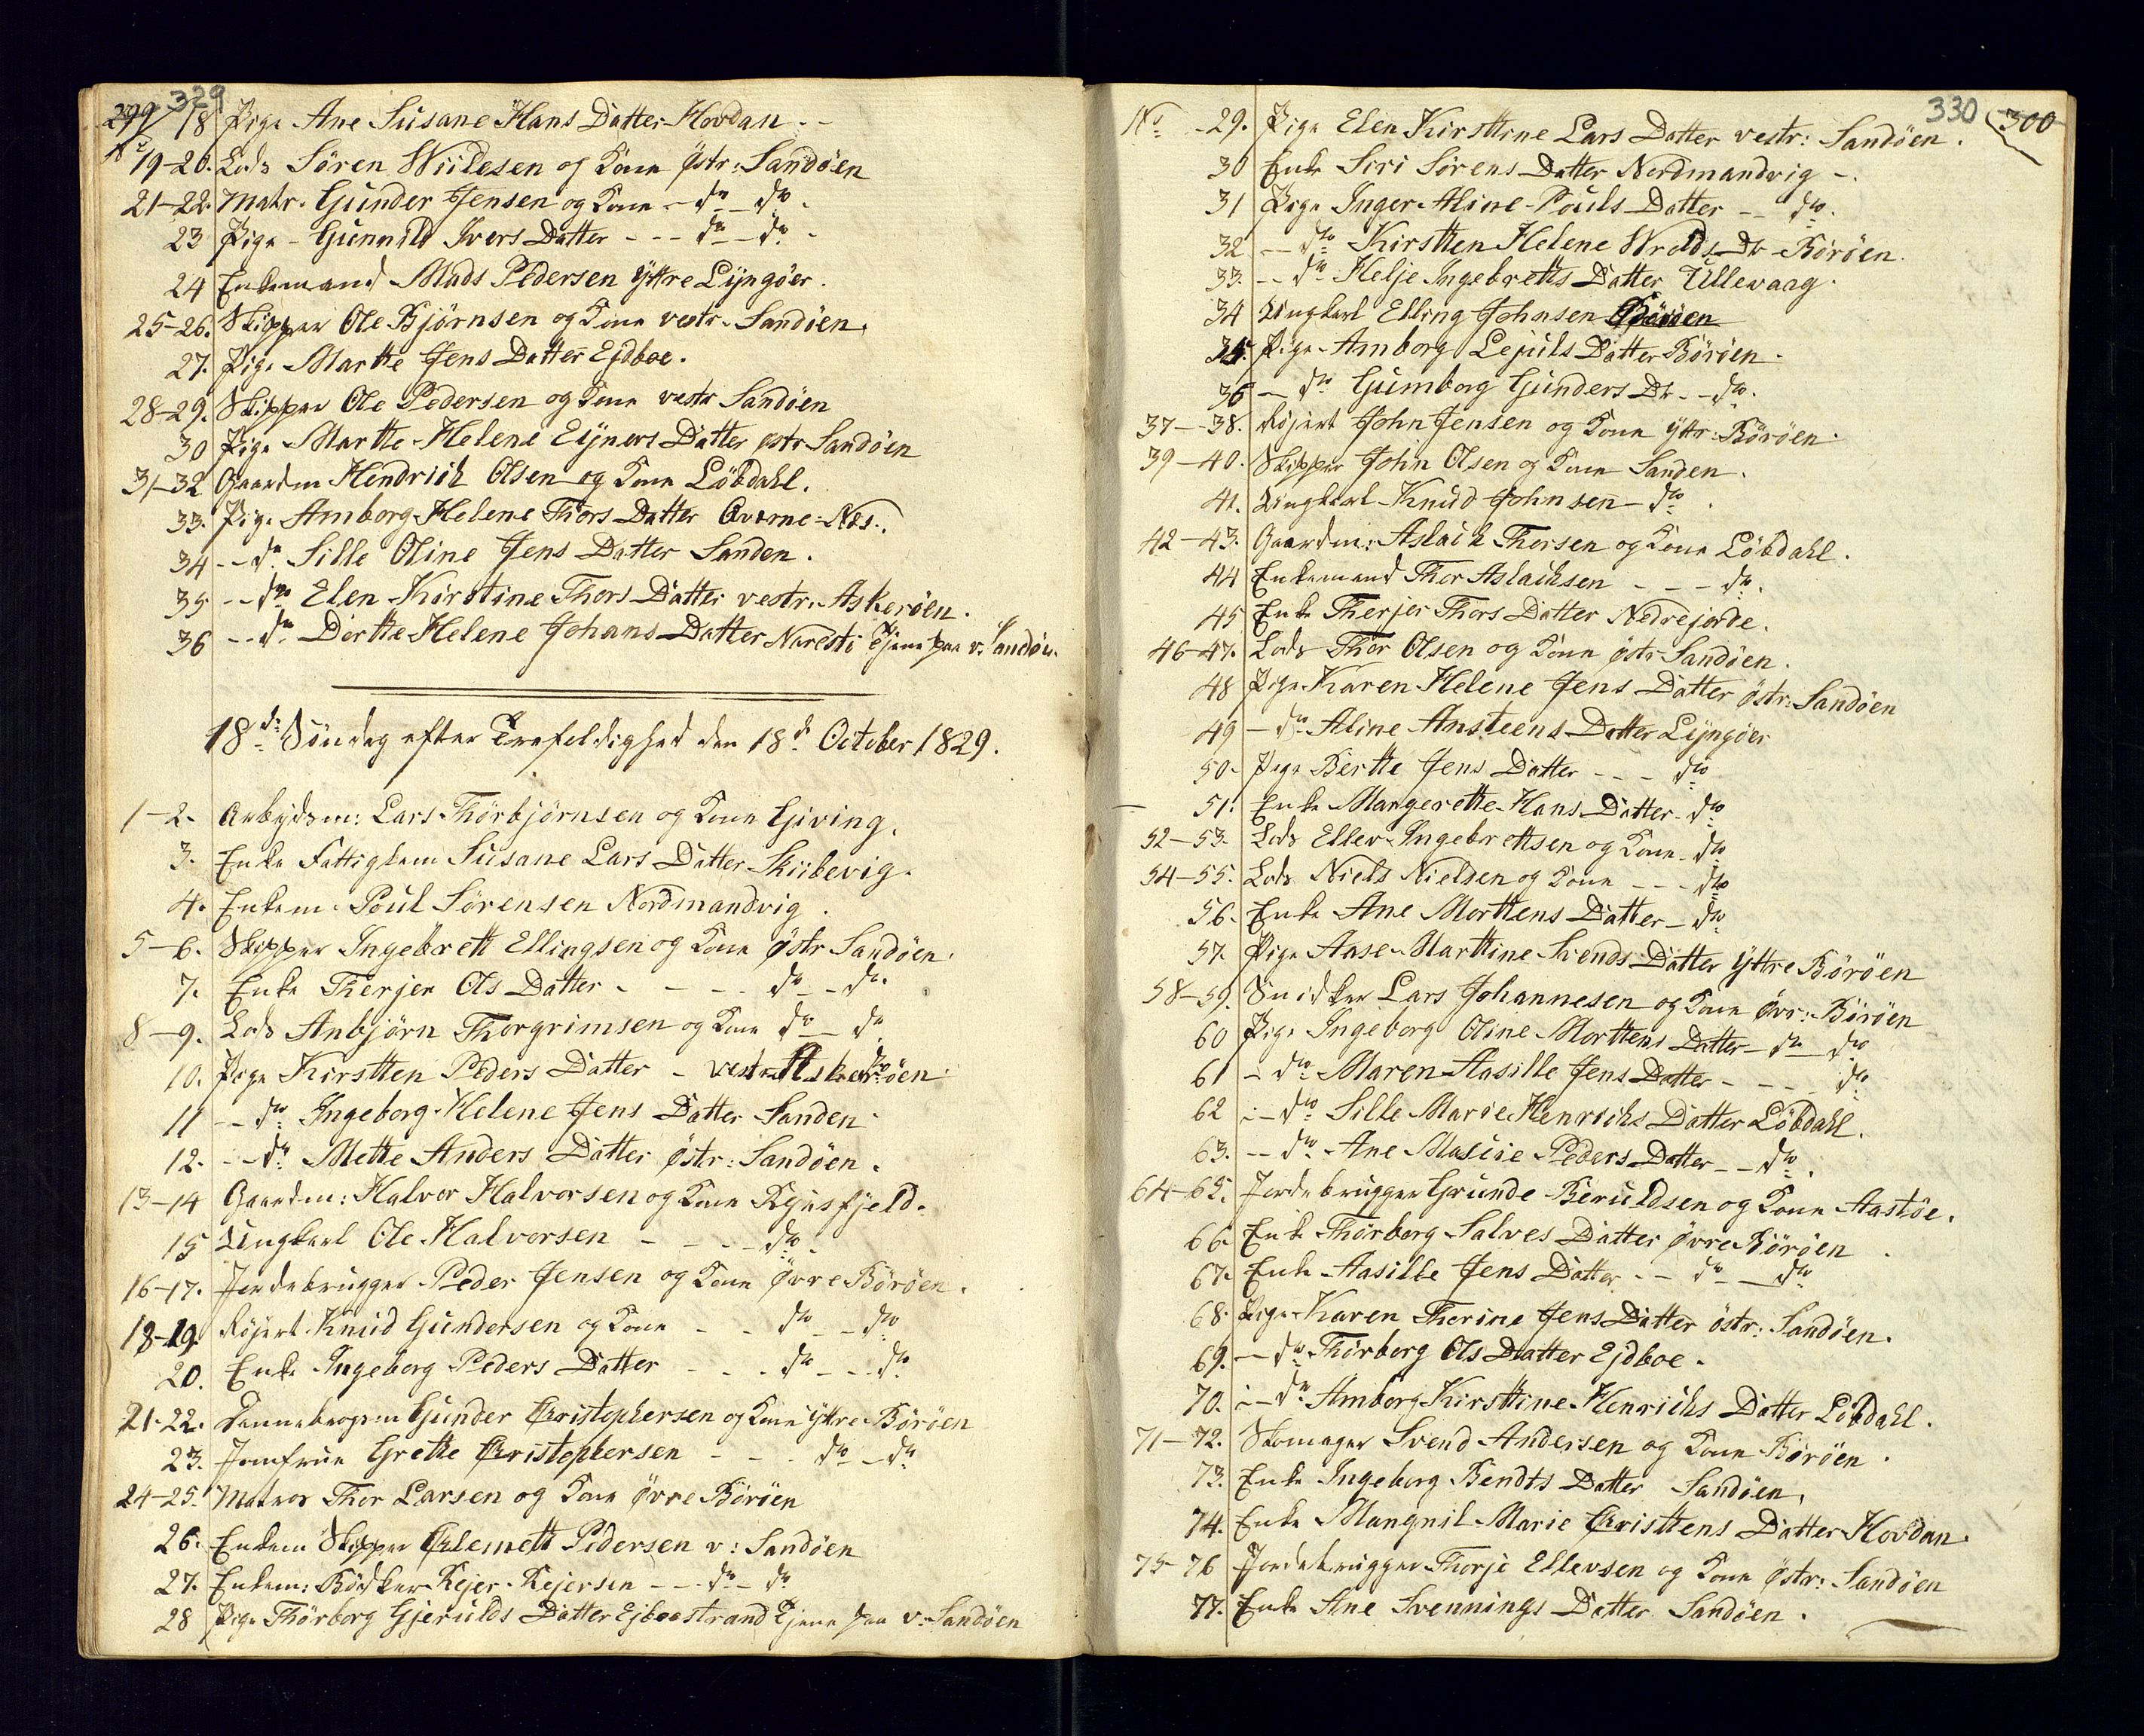 299 329
18 Pige Ane Susane Hans Datter Hovdan --
No 19-20. Lods Sören Wiilesen og Kone östr: Sandöen
21-22. Matr. Gunder Jensen og Kone - do - do -
23 Pige - Gunnild Ivers Datter - - - do - do -
24 Enkemand Mads Pedersen Yttre Lyngöer.
25-26. Skipper Ole Björnsen og Kone vestr. Sandöen.
27. Pige Marthe Jens Datter Ejdboe.
28-29. Skipper Ole Pedersen og Kone vestr Sandöen
30 Pige Marthe Helene Eyners Datter östr Sandöen
31-32 Gaardm Hendrich Olsen og Kone Löbdahl.
33. Pige Amborg Helene Thors Datter Qverne-Næs.
34 -- do Sille Oline Jens Datter Sanden.
35 -- do Elen Kirstine Thors Datter vestr. Askeröen.
36 -- do Dorthe Helene Johans Datter Naresti tjene paa v. Sandöen.
18de Söndag efter Trefoldighed den 18d October 1829.
1-2. Arbejdsm: Lars Thörbjörnsen og Kone Giving.
3. Enke Fattiglem Susane Lars Datter Skiibevig.
4. Enkem. Poul Sörensen Nordmandvig.
5-6. Skipper Ingebrett Ellingsen og Kone östr Sandöen.
7. Enke Therjer Ols Datter - - - - do - do.
8-9. Lods Anbjörn Thorgrimsen og Kone do - do
10. Pige Kirstten Peders Datter - vestr Askeröen
11 -- do Ingeborg Helene Jens Datter Sanden
12. -- do Mette Anders Datter östr: Sandöen.
13-14 Gaardm: Halvor Halvorsen og Kone Rejusfjeld.
15 Ungkarl Ole Halvorsen - - - do -
16-17. Jordebrugger Peder Jensen og Kone övre Böröen.
18-19. Röjert Knud Gundersen og Kone - - do - do
20. Enke Ingeborg Peders Datter - - - do - - do
21-22. Dannebrogsm Gunder Christophersen og Kone Yttre Böröen
23. Jomfrue Grethe Christophersen - - - do - do
24-25. Matros Thor Larsen og Kone övre Böröen
26. Enkem Skipper Clemett Pedersen v: Sandöen
27. Enkem: Bödker Rejer Rejersen - - do - do
28 Pige Thörborg Gjerulds Datter Ejboestrand tjene paa v. Sandöen
330 300
No 29. Pige Elen Kirsttine Lars Datter vestr: Sandöen.
30 Enke Siri Sörens Datter Nordmandvig -.
31 Pige Inger Aline Pouls Datter -- do.
32 -- do Kirstten Helene Wrolds Dr Böröen.
33. -- do Helje Ingebretts Datter Ullevaag.
34 Ungkarl Elling Johnsen Böröen
35. Pige Amborg Lejuls Datter Böröen.
36 -- do Gumborg Gunders Dr. - do.
37-38. Röjert John Jensen og Kone yttr Böröen.
39-40. Skipper John Olsen og Kone Sanden.
41. Ungkarl Knud Johnsen - do.
42-43. Gaardm: Aslach Thorsen og Kone Löbdahl.
44 Enkemand Thor Aslachsen - - - do.
45 Enke Therjer Thors Datter Nedrejorde.
46-47. Lods Thor Olsen og Kone östr Sandöen.
48 Pige Karen Helene Jens Datter östr: Sandöen
49 - do Aline Ansteens Datter Lyngöer
50- Pige Berthe Jens Datter - - - do
51. Enke Mangerette Hans Datter - do
52-53. Lods Ellev Ingebrettsen og Kone - do
54-55. Lods Niels Nielsen og Kone - - - do
56. Enke Ane Morttens Datter - do
57. Pige Aase Marttine Svends Datter Yttre Böröen
58-59. Snidker Lars Johannesen og Kone övr: Böröen
60 Pige Ingeborg Oline Morttens Datter - do do
61 - do Maren Aasille Jens Datter - - - do
62 -- do Sille Marie Henrichs Datter Löbdahl.
63. -- do Ane Malsie Peders Datter - - do.
64-65. Jordebrugger Grunde Beruldsen og Kone Aastöe.
66. Enke Thörborg Salves Datter övre Böröen.
67. Enke Aasille Jens Datter -- do - do
68. Pige Karen Therine Jens Datter östr: Sandöen.
69. - do Thörborg Ols Datter Ejdboe.
70. -- do Amborg Kirsttine Henrichs Datter Löbdahl.
71-72. Skomager Svend Andersen og Kone Böröen.
73. Enke Ingeborg Bendts Datter Sandöen.
74. Enke Mangnil Marie Christtens Datter Hovdan.
75-76 Jordebrugger Thorje Ellevsen og Kone östr: Sandöen
77. Enke Ane Svennings Datter Sandöen.